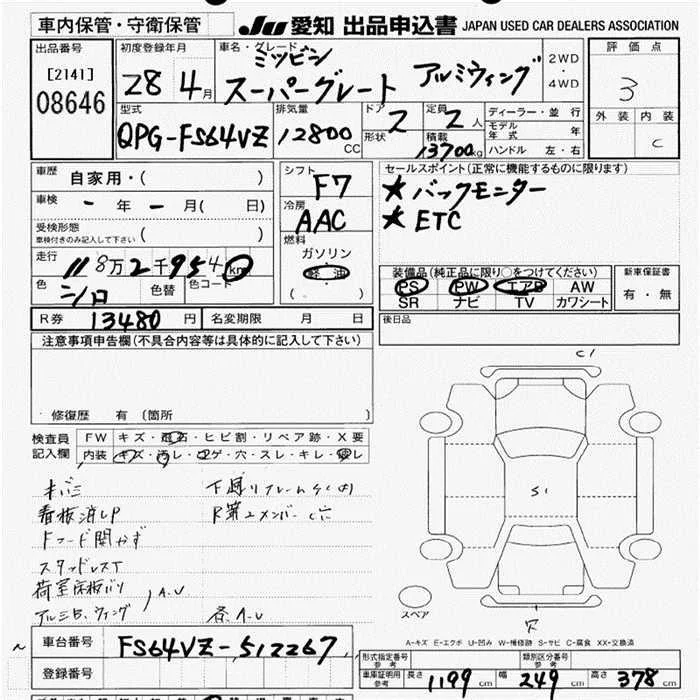 車内保管・守衛保管
JU 愛知 出品申込書 JAPAN USED CAR DEALERS ASSOCIATION
出品番号
[2141]
08646
初度登録年月
28 4月
車名・グレード
ミツビシ
スーパーグレート アルミウィング
2WD
・
4WD
評価点
3
外装 内装
C
型式
QPG-FS64VZ
排気量
12800
CC
ドア 2
形状
定員 2人
積載 13700kg
ディーラー・並行
モデル年式 年
ハンドル 左・右
車歴
自家用・( )
車検
- 年 - 月( 日)
受検形態
車検付きのみ記入して下さい ( )
走行
118万2千954km
色
シロ
色替
色コード
シフト
F7
冷房
AAC
燃料
ガソリン
軽油
( ・ )
セールスポイント(正常に機能するものに限ります)
★バックモニター
★ETC
装備品(純正品に限り○をつけてください)
PS PW エアB AW
SR ナビ TV カワシート
新車保証書
有・無
R券 13480円
名変期限 月 日
後日品
注意事項申告欄(不具合内容等は具体的に記入して下さい)
修復歴 有 (箇所 )
検査員
記入欄
FW キズ・飛石・ヒビ割・リペア跡・X要
内装 キズ・汚レ・コゲ・穴・スレ・キレ・
キバミ
看板消し
Fフード開かず
スタッドレスT
荷室床板バリ
アルミB、ウィング
A.U
下廻りフレーム
R第2メンバー C穴
各A-U
C1
S1
穴
スペア
A-キズ E-エクボ U-凹み W-補修跡 S-サビ C-腐食 XX-交換済
車台番号
FS64VZ-512267
登録番号
形式指定番号
参考
類別区分番号
参考
車庫証明用
参考
長さ 1199cm 幅 249cm 高さ 378cm